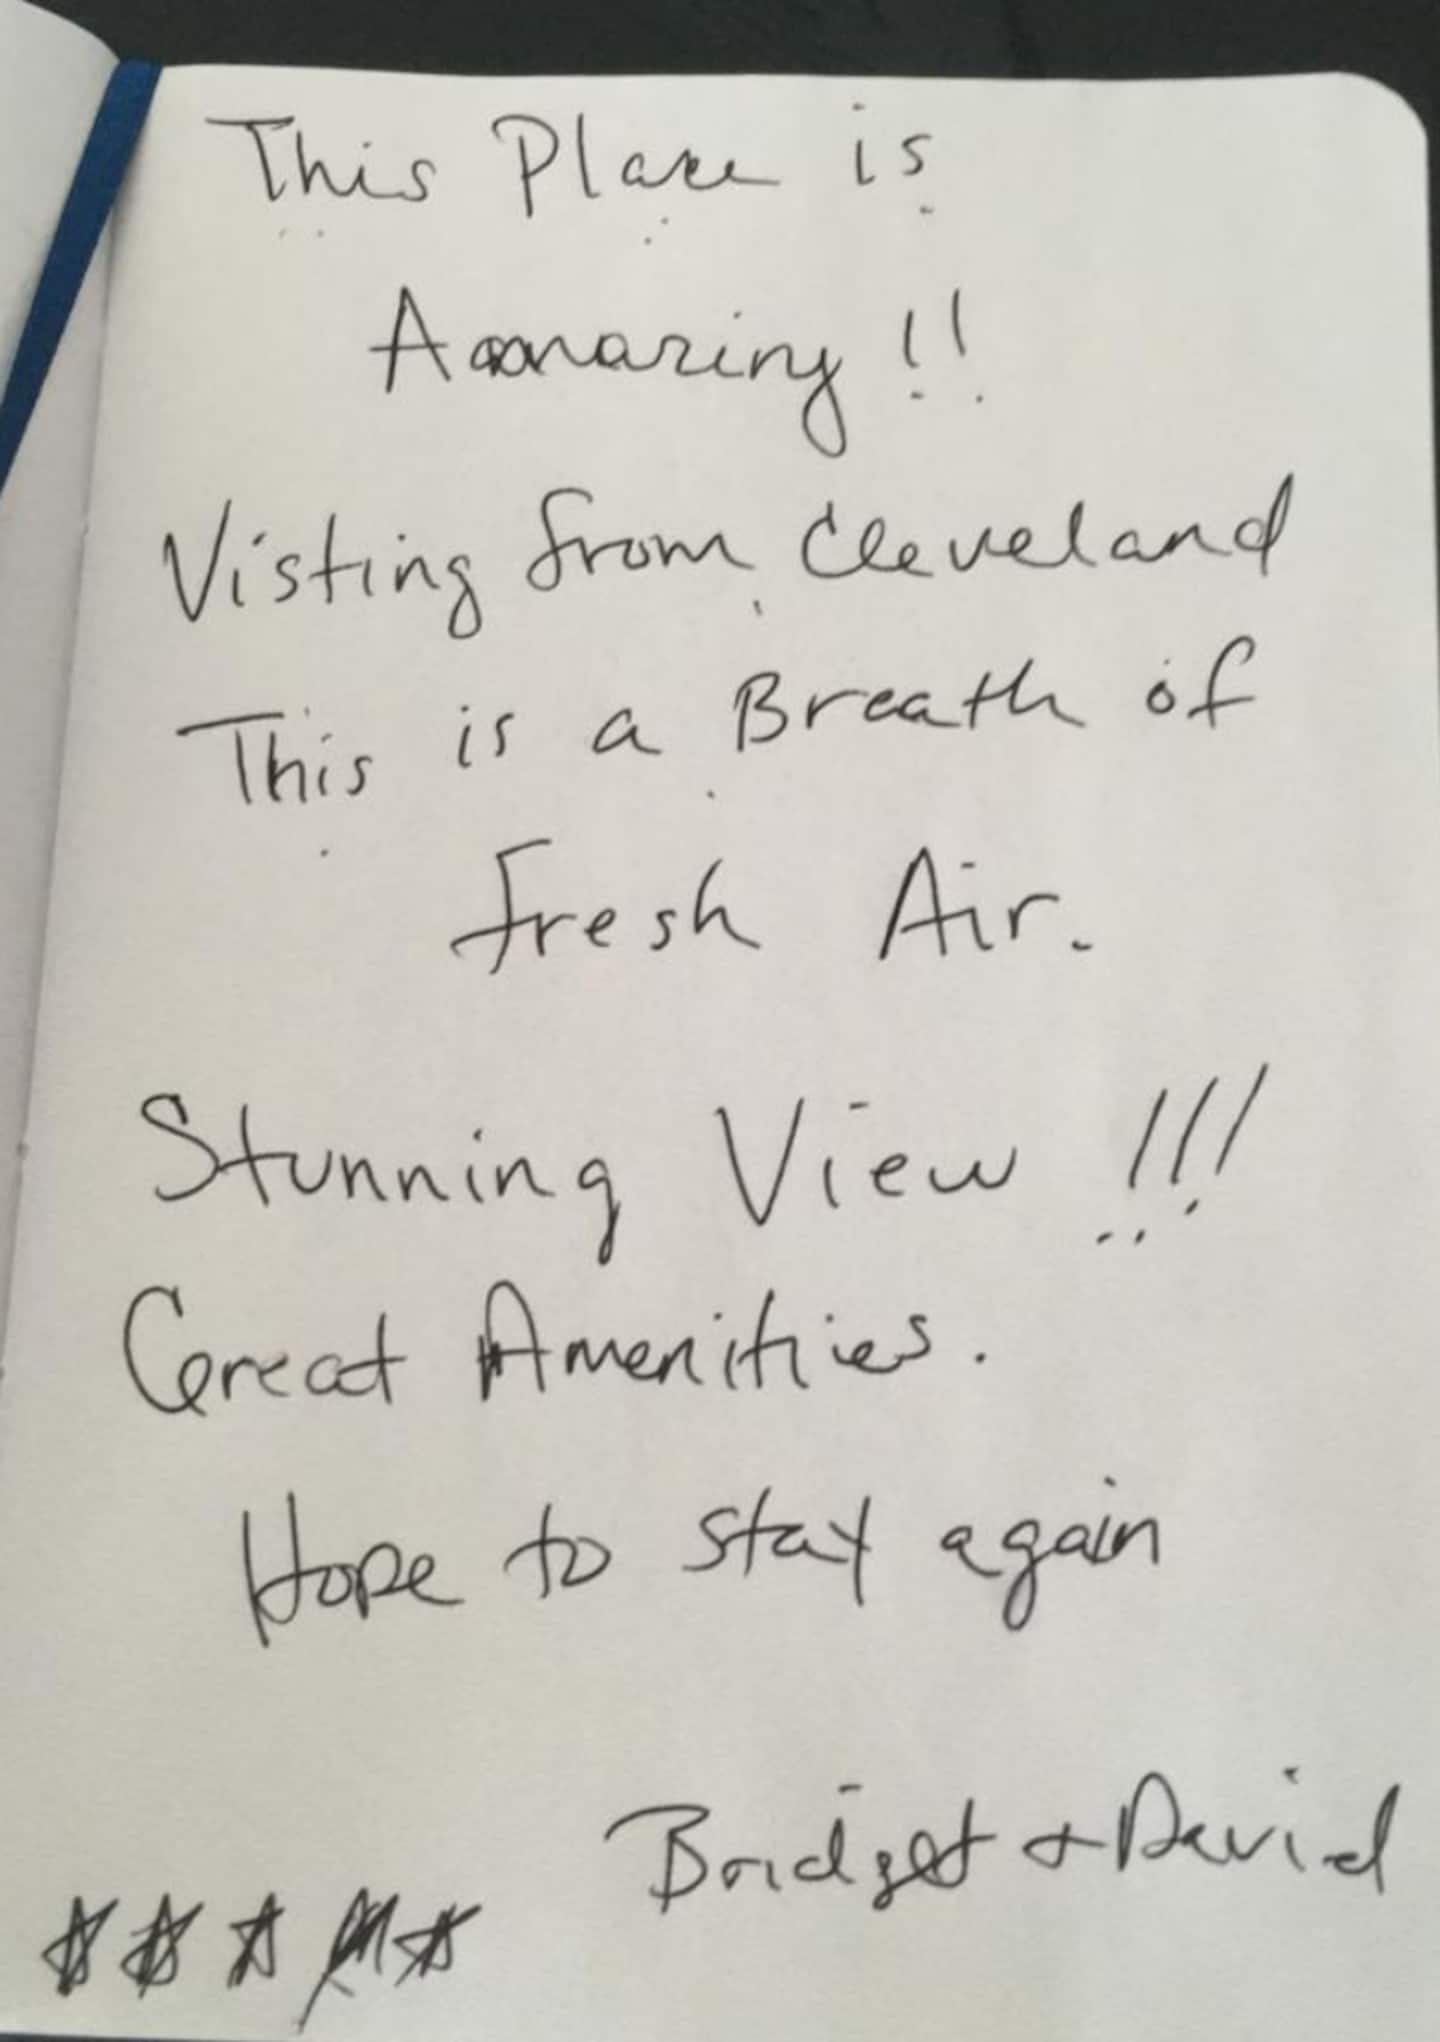 This Place is
Amazing!!
Visting from Cleveland
This is a Breath of
Fresh Air.
Stunning View!!!
Great Amenities.
Hope to stay again
Bridget + David